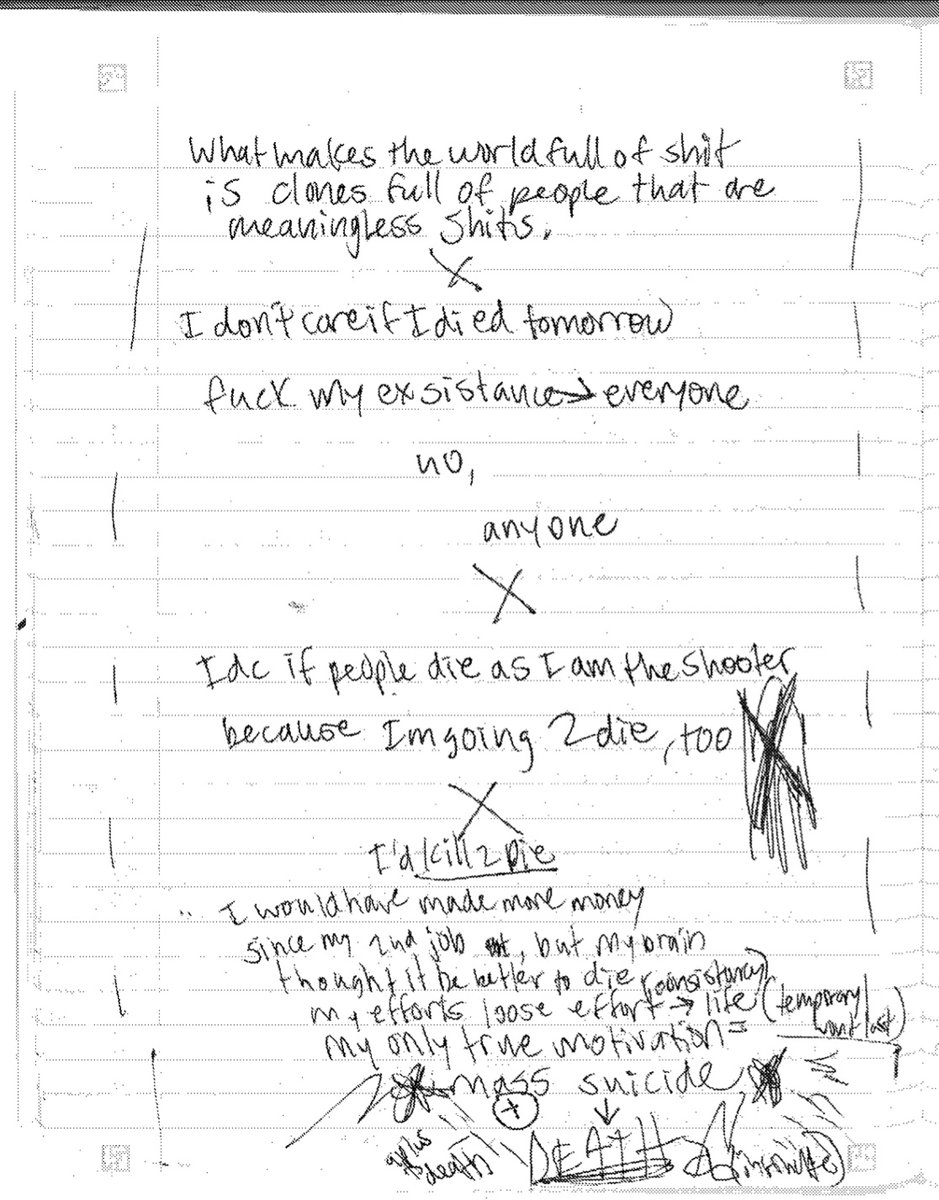 What makes the world full of shit
is clones full of people that are
meaningless shits.
I don't care if I died tomorrow
fuck my exsistance → everyone
no,
anyone
Idc if people die as I am the shooter
because Im going 2 die, too
I'd kill 2 Die
I would have made more money
since my 2nd job, but my brain
thought it be better to die (consistancy)
my efforts loose effort → life (temporary
wont last)
my only true motivation =
mass suicide
+ ↓
death DEATH (infinite)